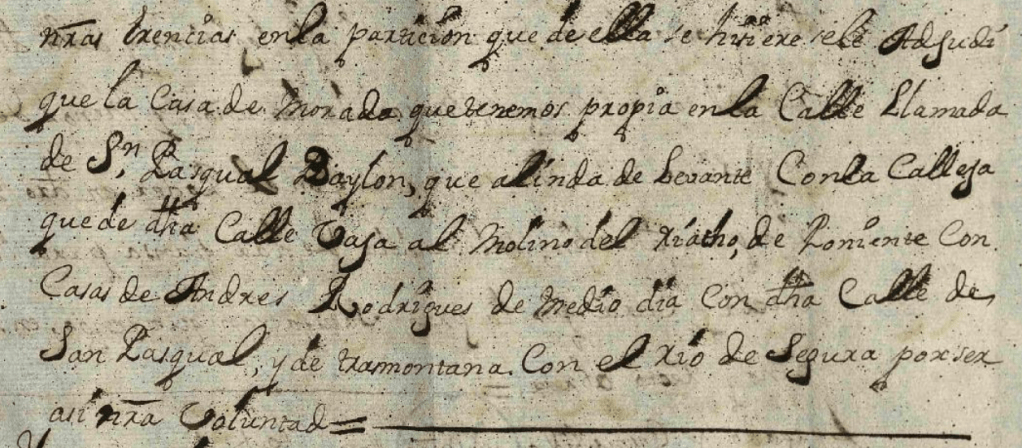 nr̃as herencias en la particion que de ella se hisiere se le Adjudi
que la Casa de Morada que tenemos propia en la Calle Llamada
de Sn. Pasqual Baylon, que alinda de Levante Con la Calleja
que de dha Calle Vaja al Molino del riacho, de Poniente Con
Casas de Andres Rodrigues de Medio dia Con dha Calle de
San Pasqual, y de tramontana Con el rio de Segura por ser
asi nr̃a Voluntad =